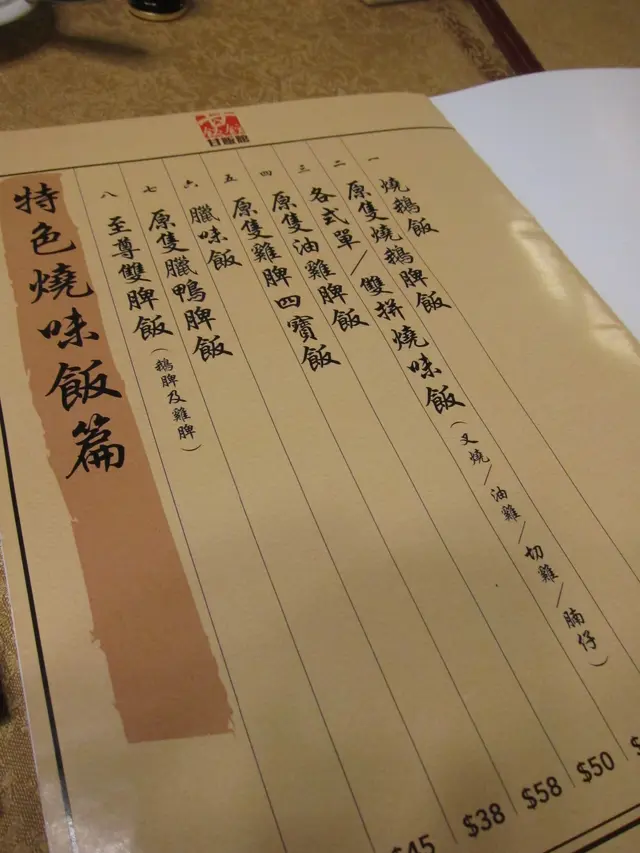 甘飯館
一 燒鵝飯
二 原隻燒鵝脾飯
三 各式單/雙拼燒味飯(叉燒/油雞/切雞/腩仔)
四 原隻油雞脾飯
五 原隻雞脾四寶飯
六 臘味飯
七 原隻臘鴨脾飯
八 至尊雙脾飯(鵝脾及雞脾)
特色燒味飯篇
$50
$58
$38
$45